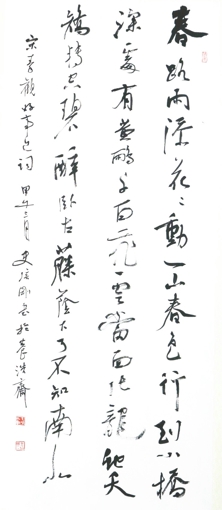 春路雨添花〻動一山春色行到小橋
深處有黃鸝千百飛雲當面化龍蛇夭
矯轉空碧醉臥古藤蔭下了不知南北
宋秦觀好事近詞 甲午三月